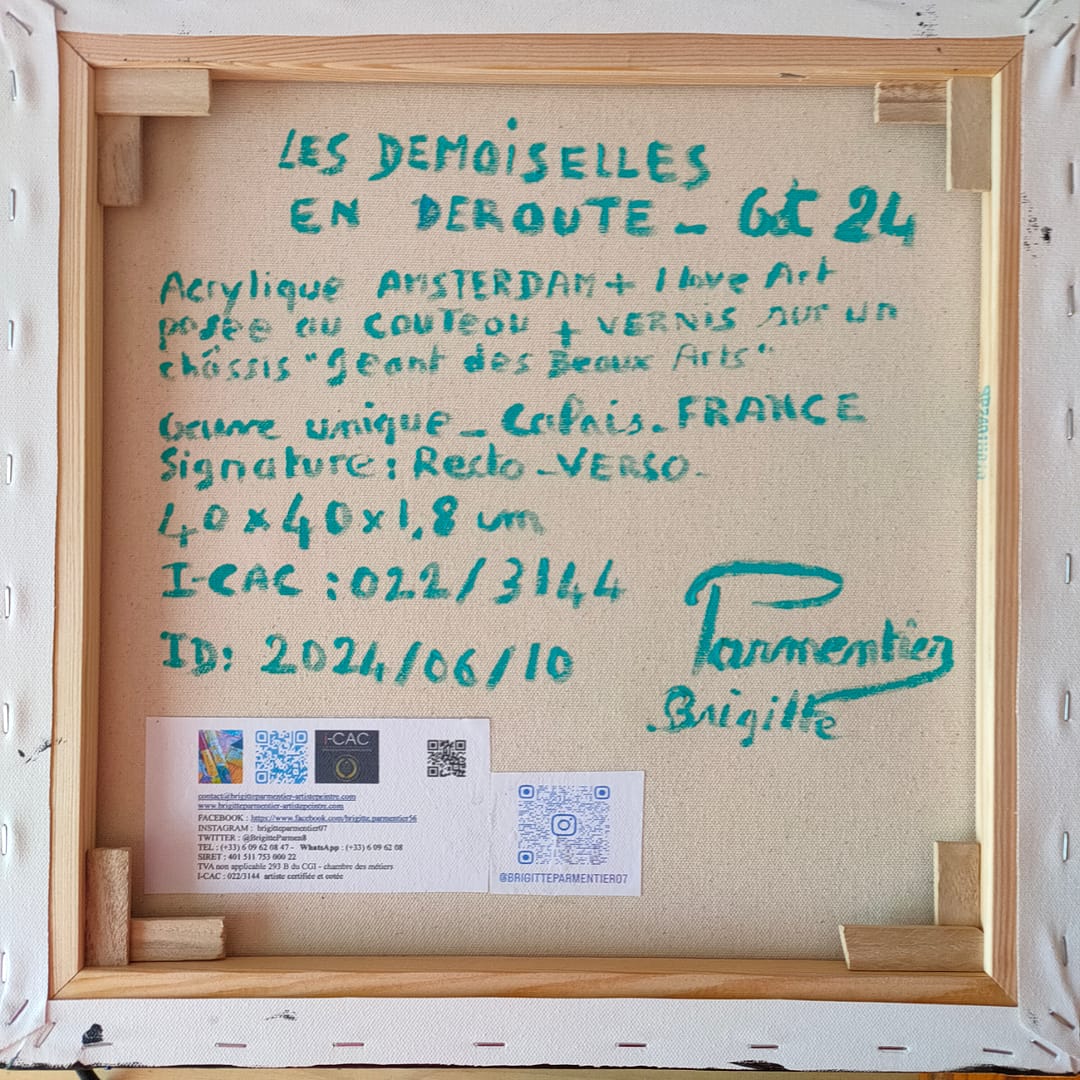 LES DEMOISELLES
EN DEROUTE - Oct 24
Acrylique AMSTERDAM + I love Art
posée au COUTEAU + VERNIS sur un
châssis "Geant des Beaux Arts"
Oeuvre unique - Calais - FRANCE
Signature: Recto - VERSO -
40 x 40 x 1,8 cm
I-CAC : 022/3144
ID: 2024/06/10
Parmentier
Brigitte
i-CAC
contact@brigitteparmentier-artistepeintre.com
www.brigitteparmentier-artistepeintre.com
FACEBOOK : https://www.facebook.com/brigitte.parmentier56
INSTAGRAM : brigitteparmentier07
TWITTER : @BrigitteParmen8
TEL : (+33) 6 09 62 08 47 - WhatsApp : (+33) 6 09 62 08
SIRET : 401 511 753 000 22
TVA non applicable 293 B du CGI - chambre des métiers
I-CAC : 022/3144 artiste certifiée et cotée
@BRIGITTEPARMENTIER07